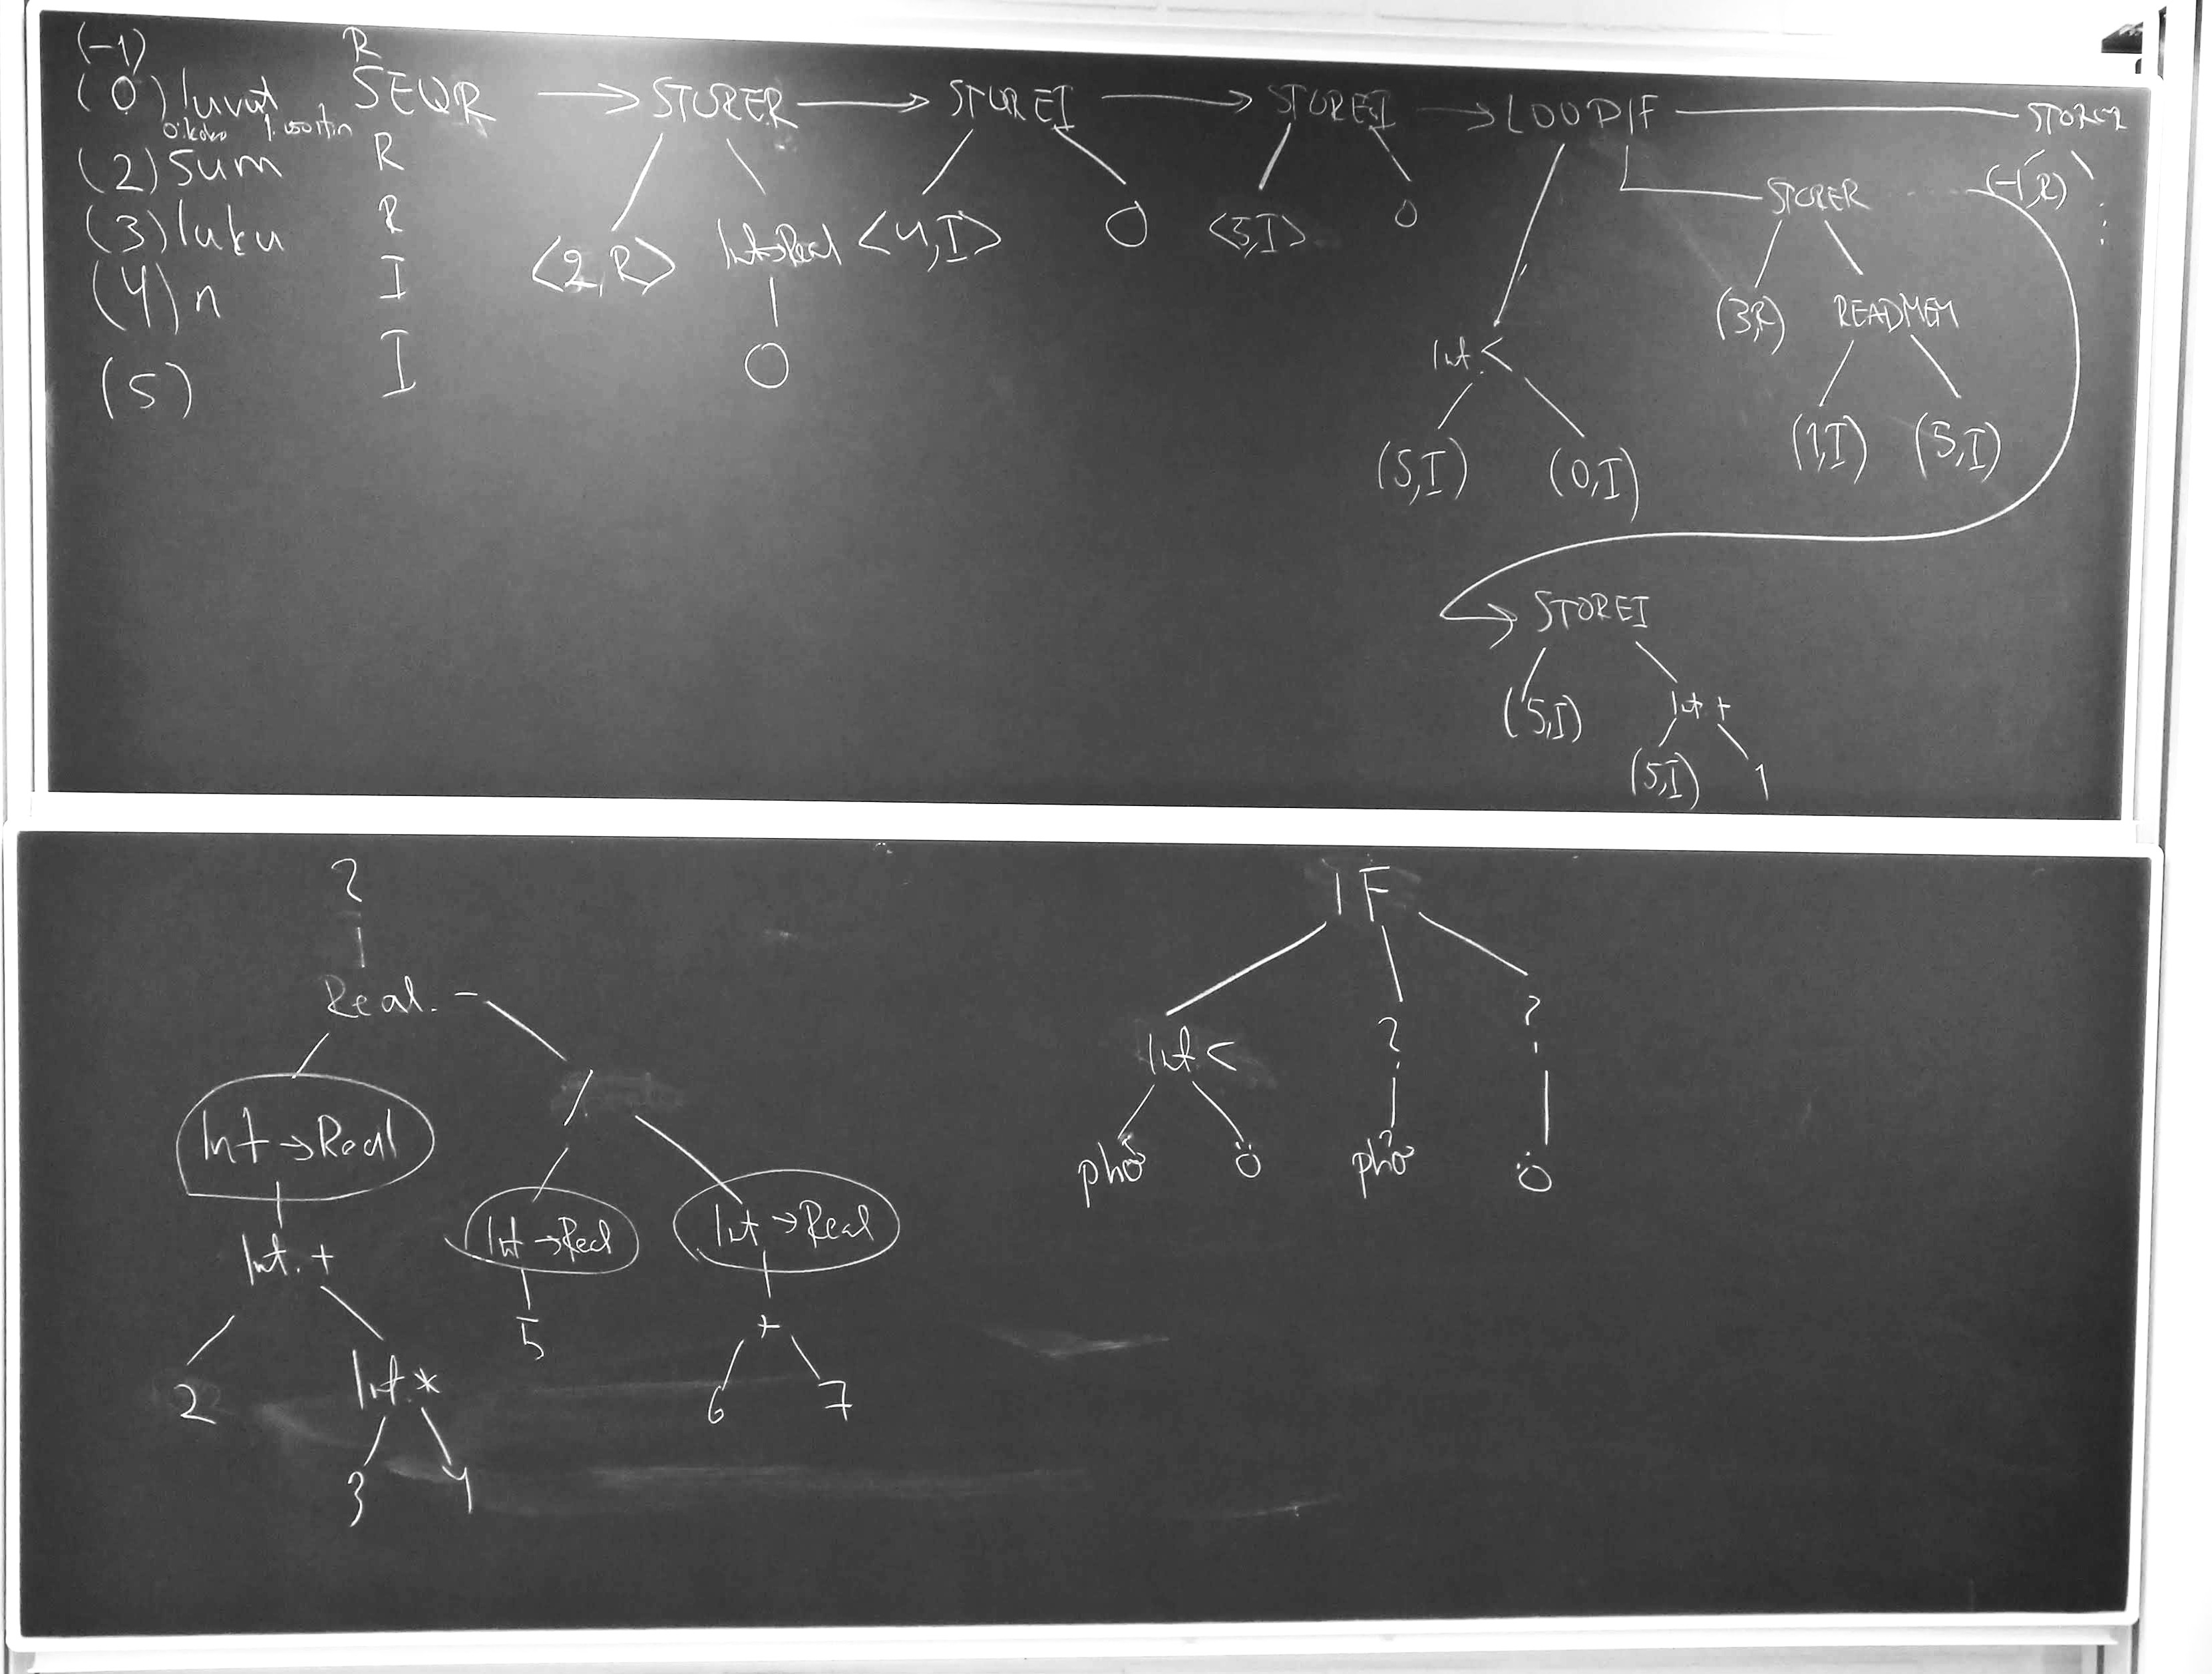 (-1) R
(0) luvut SEQR → STORER → STOREI → STOREI → LOOPIF STORER
0: koko 1: osoitin
(2) sum R
(3) luku R
(4) n I
(5) I
<2,R> Int→Real <4,I> 0 <5,I> 0
0
STORER (-1,R)
(3,R) READMEM
(1,I) (5,I)
Int. <
(5,I) (0,I)
STOREI
(5,I) Int. +
(5,I) 1
?
Real. -
/
Int → Real
Int → Real Int → Real
Int. +
5 +
2 Int. *
6 7
3 4
IF
Int < ? ?
0 0